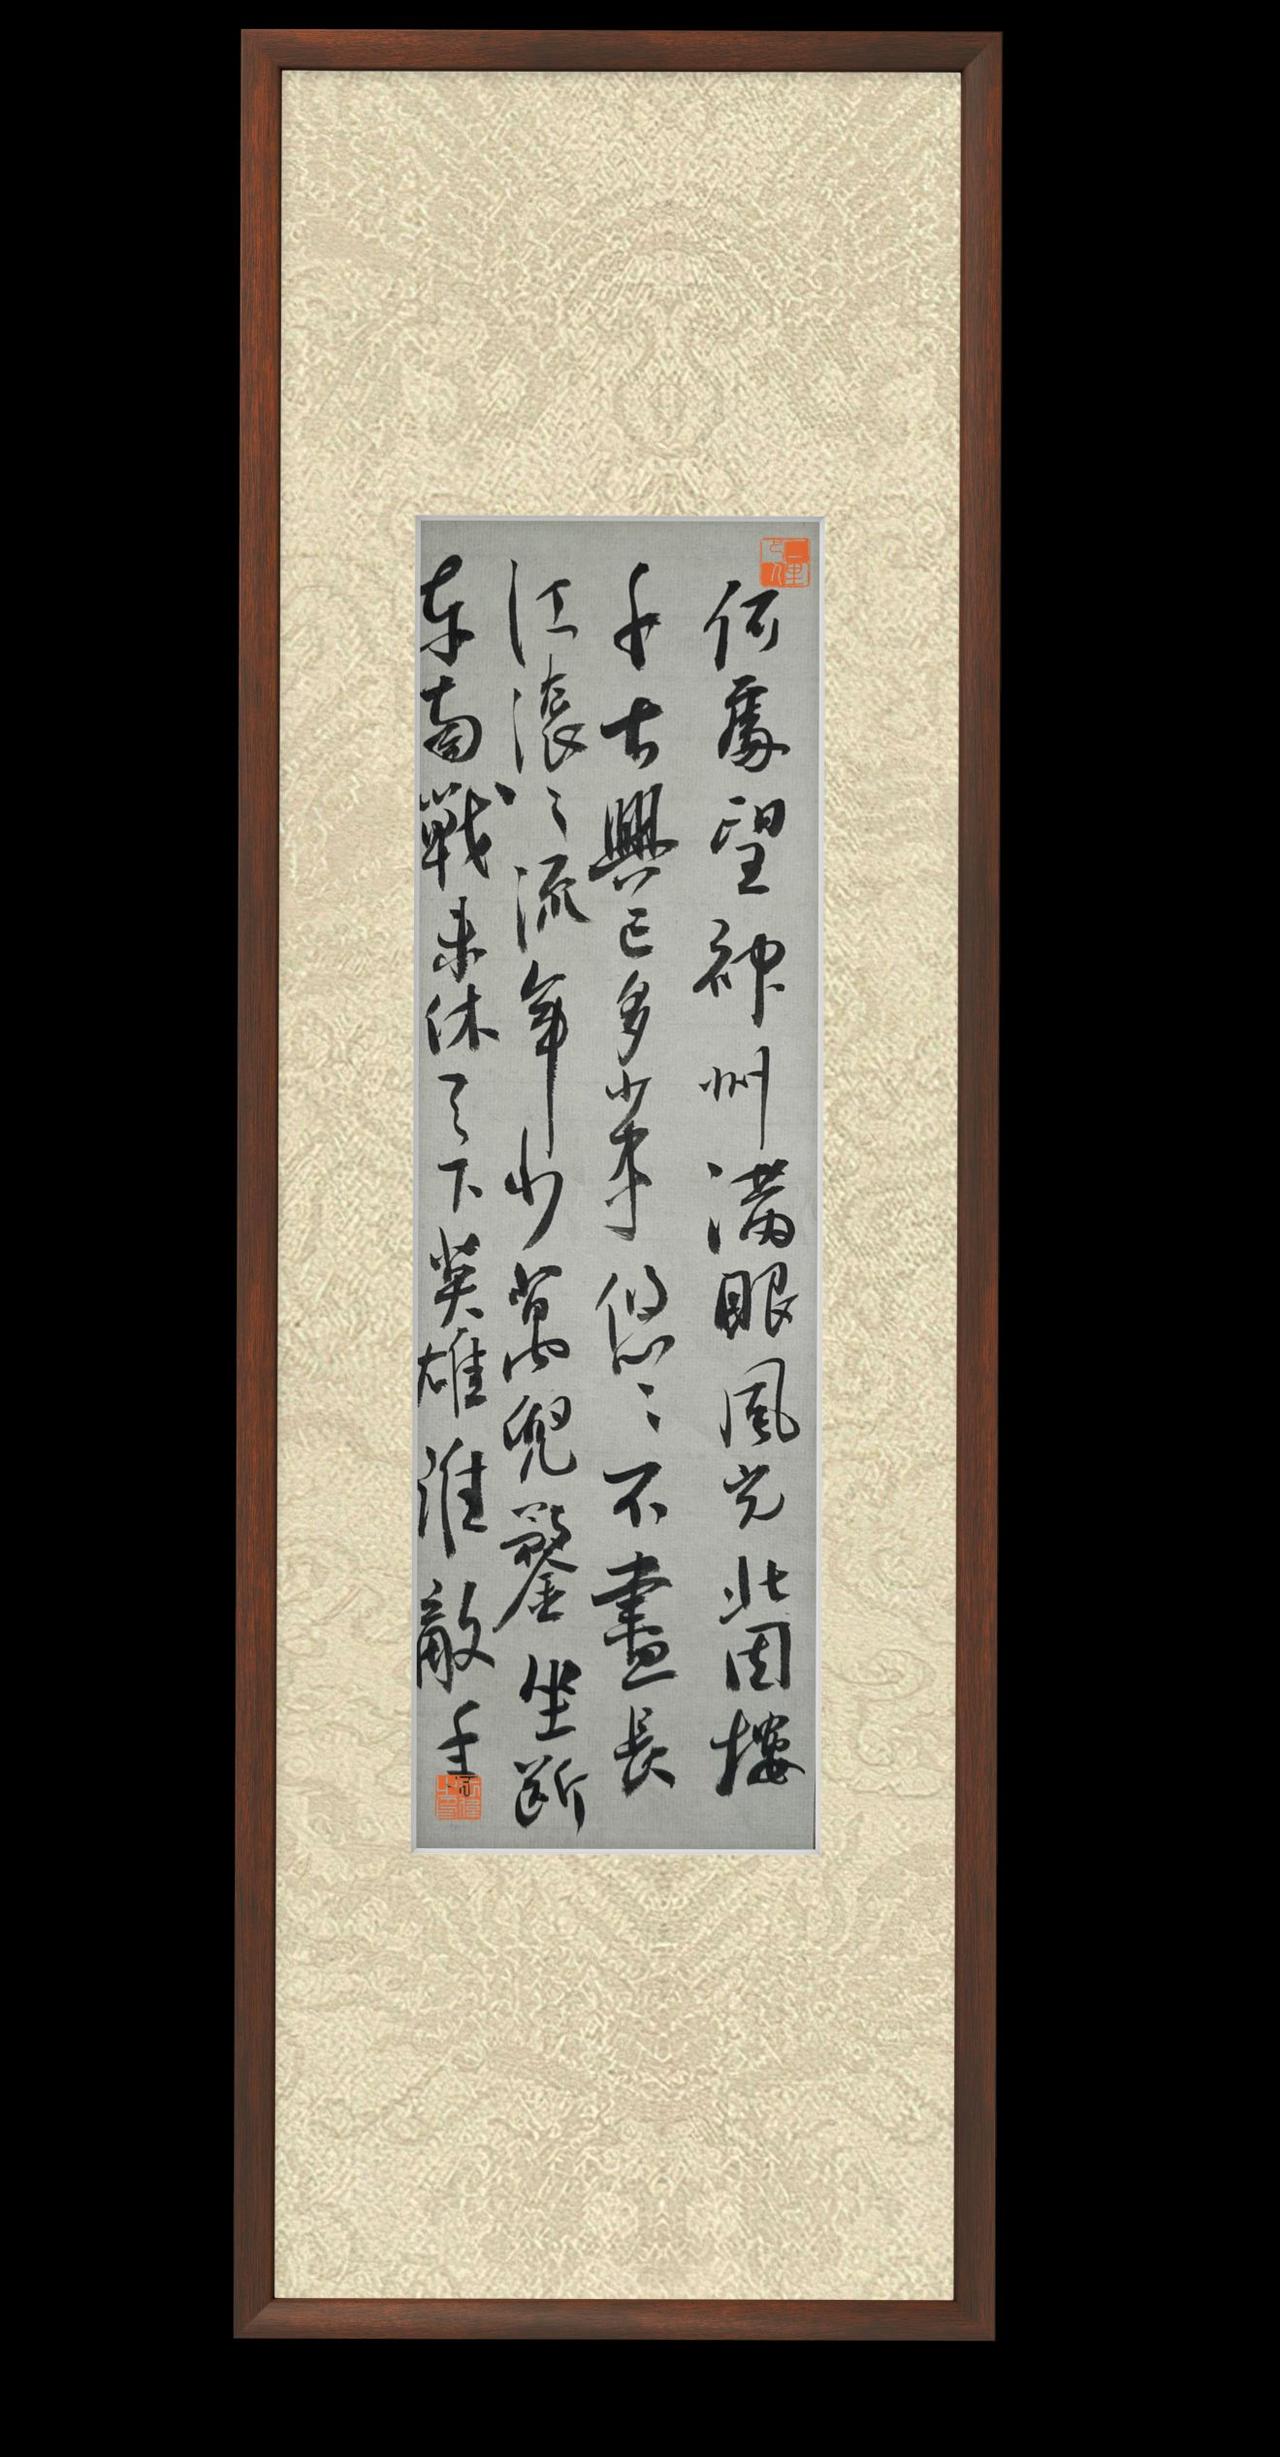 何處望神州滿眼風光北固樓
千古興亡多少事悠〻不盡長
江滾〻流年少萬兜鍪坐斷
東南戰未休天下英雄誰敵手